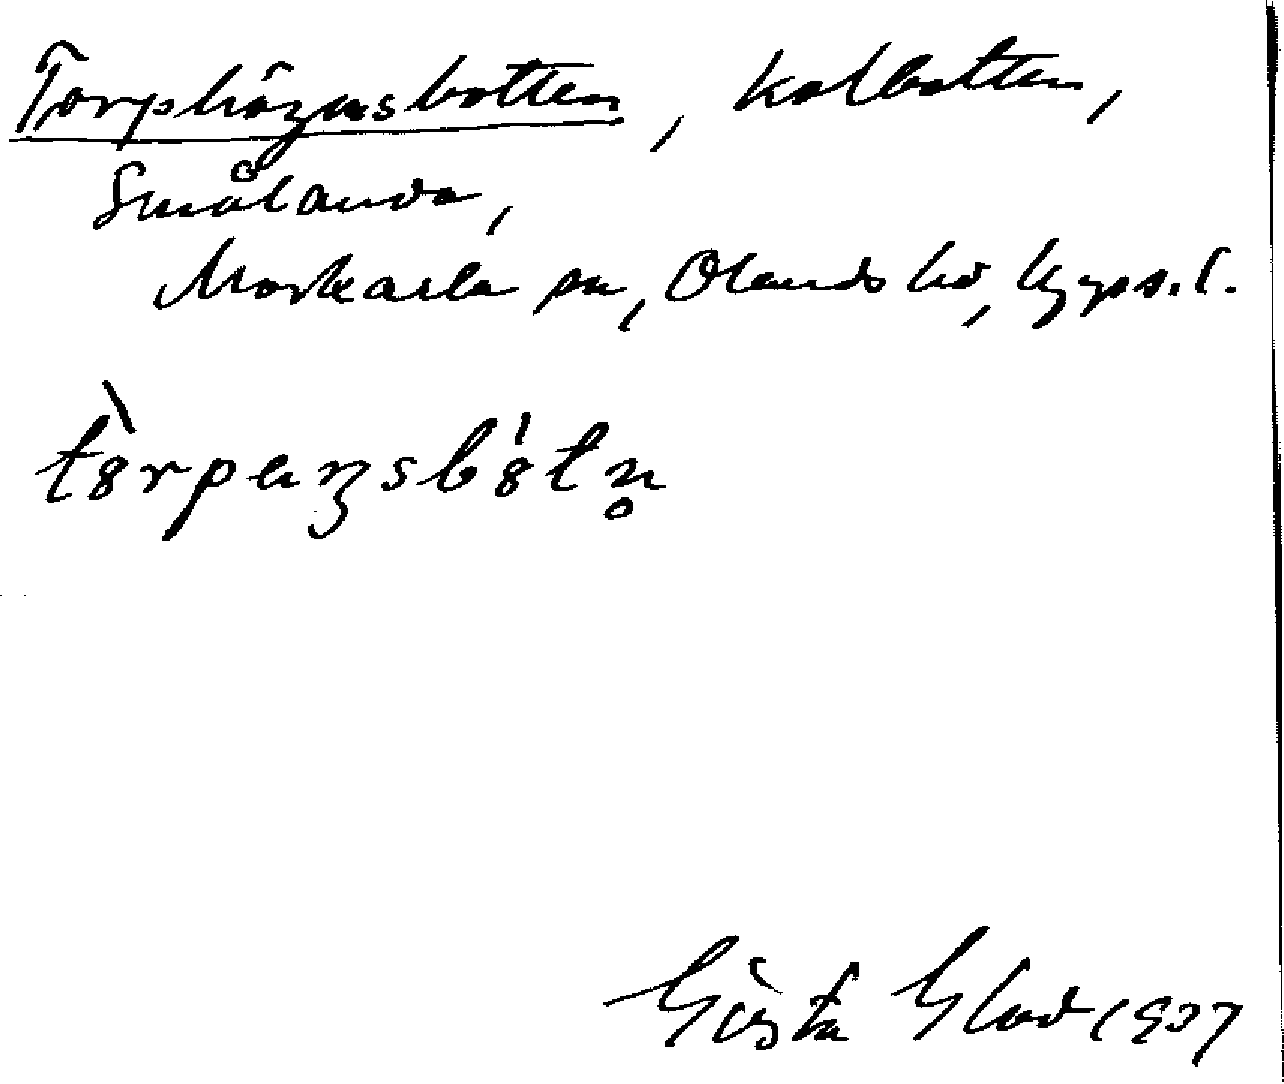 Torphögensbotten, kolbotten,
Smålanda,
Morkarla sn, Olands hd, Upps. l.
tòrpęnsbótn̥
Gösta Glad 1937